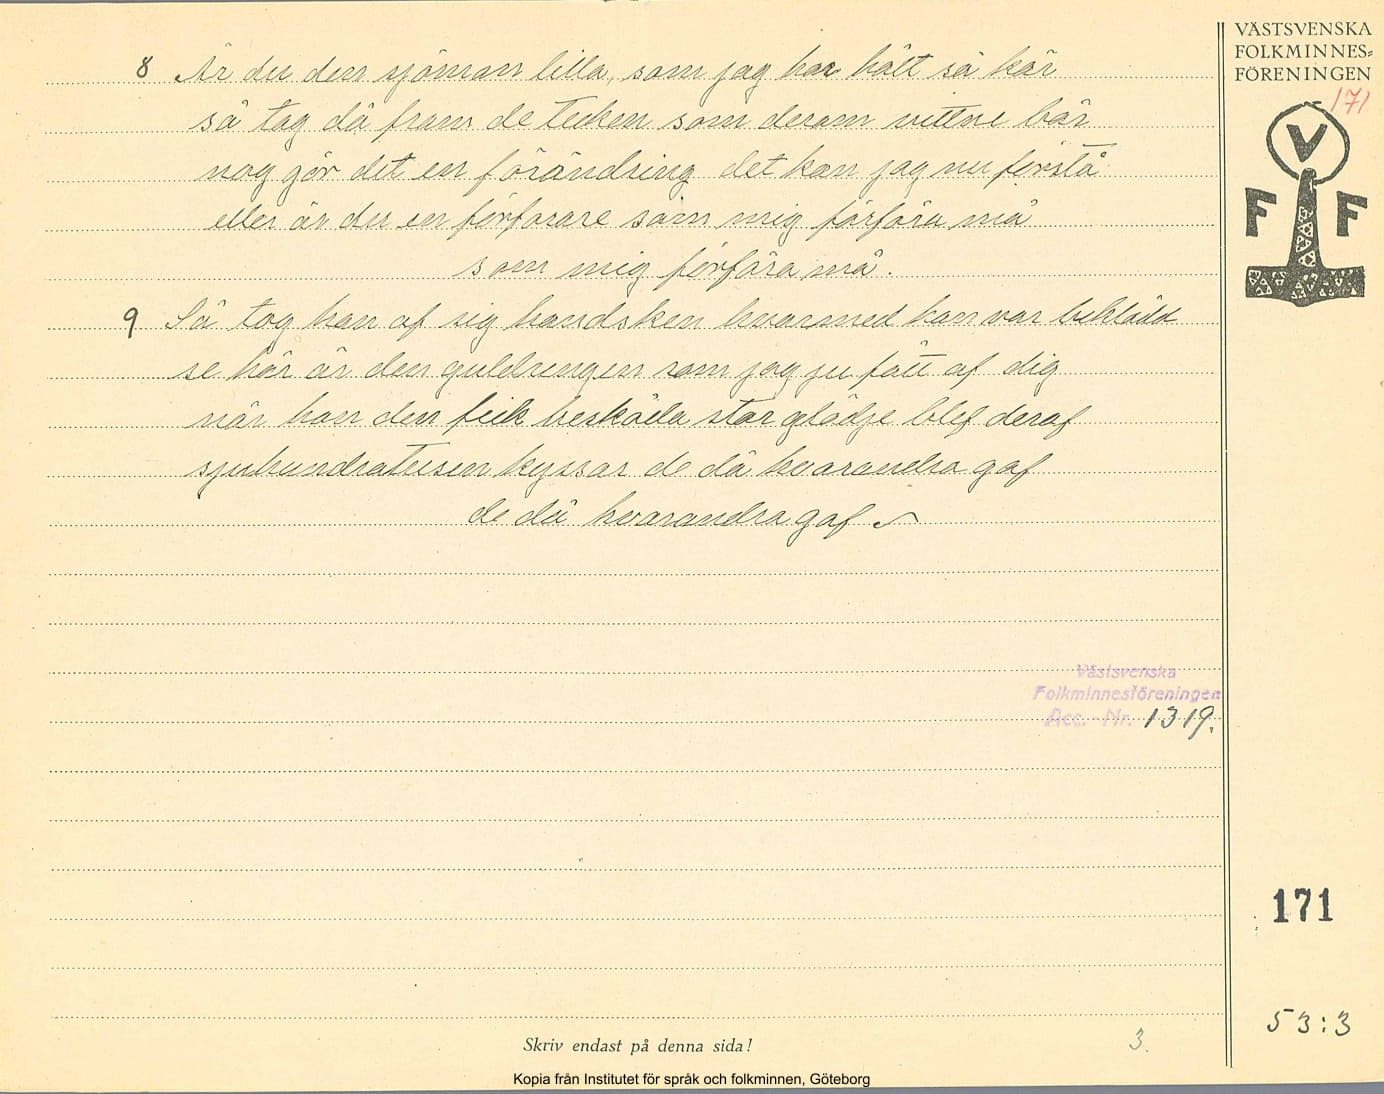 VÄSTSVENSKA
FOLKMINNES-
FÖRENINGEN
171
V
F F
8 Är du den sjöman lilla, som jag har hålt så kär
så tag då fram de tecken som derom vittne bär
nog gör det en förändring det kan jag nu förstå
eller är du en förförare som mig förföra må
som mig förföra må.
9 Så tog han af sig handsken hvarmed han var beklädd
se här är den guldringen som jag ju fått af dig
när hon den fick beskåda stor glädje blef deraf
sjuhundratusen kyssar de då hvarandra gaf
de då hvarandra gaf
Västsvenska
Folkminnesföreningen
Acc. Nr. 1319.
171
53:3
3.
Skriv endast på denna sida!
Kopia från Institutet för språk och folkminnen, Göteborg